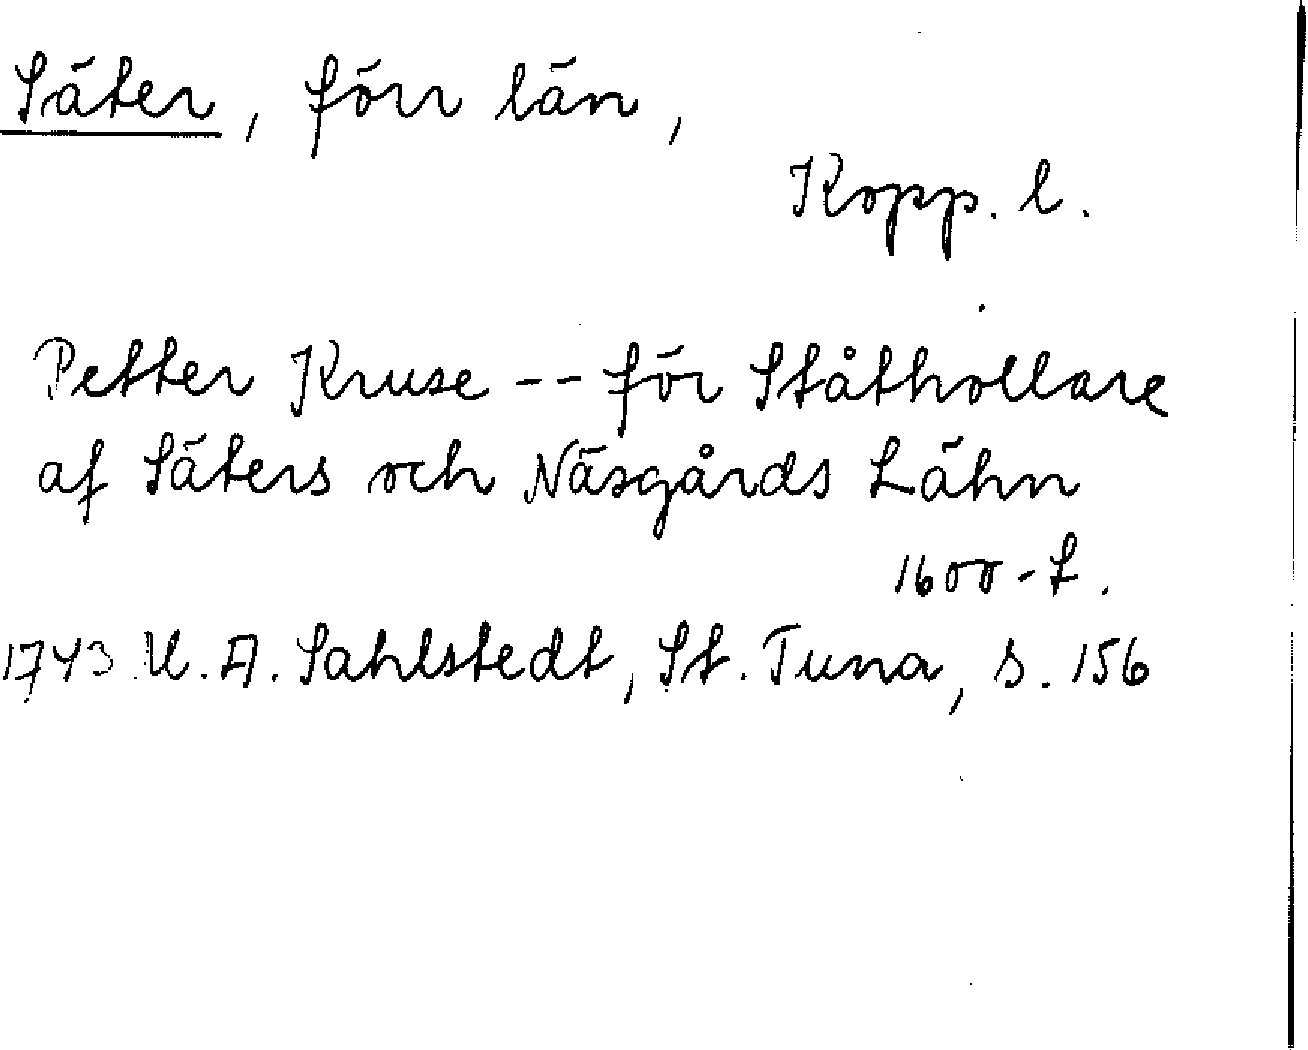 Säter, förr län,
Kopp. l.
Petter Kruse -- för Ståthollare
af Säters och Näsgårds Lähn
1600-t.
1743 U. A. Sahlstedt, St. Tuna, s. 156